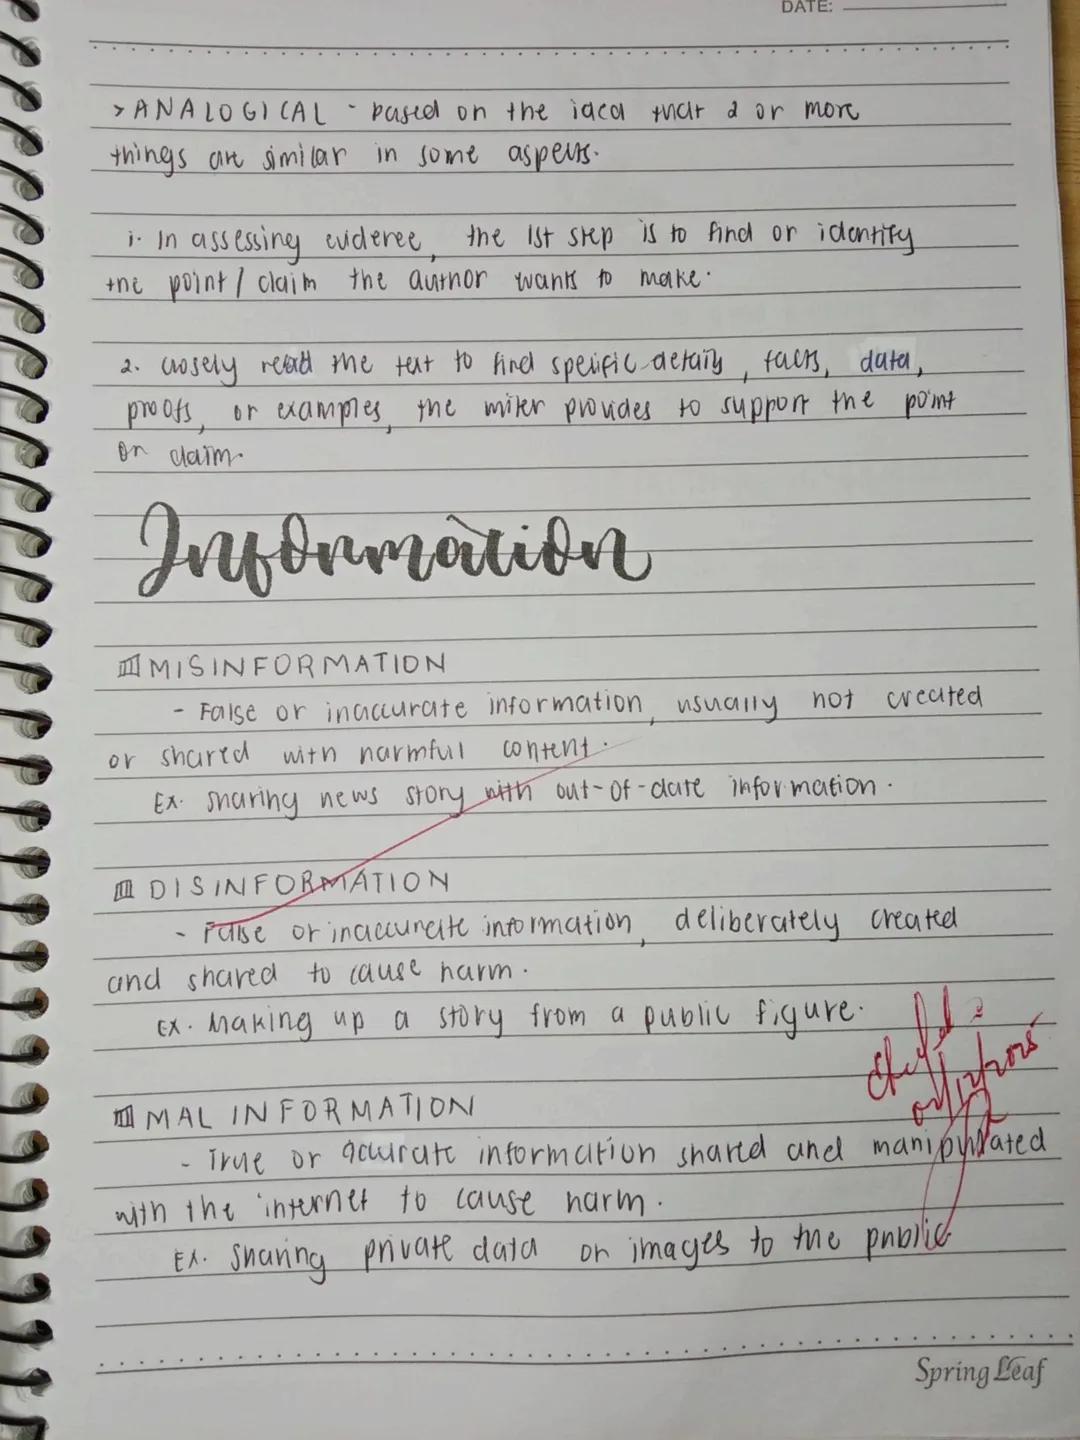 DATE:
> ANALOGICAL - based on the idea that 2 or more
things are similar in some aspects.
1. In assessing evidence, the 1st step is to find or identify
the point / claim the author wants to make.
2. closely read the text to find specific details, facts, data,
proofs, or examples, the writer provides to support the point
or claim.
Information
MISINFORMATION
- False or inaccurate information, usually not created
or shared with harmful content.
Ex. sharing news story with out-of-date information.
DISINFORMATION
- False or inaccurate information, deliberately created
and shared to cause harm.
Ex. Making up a story from a public figure.
MALINFORMATION
- True or accurate information shared and manipulated
with the internet to cause harm.
Ex. sharing private data or images to the public
Spring Leaf